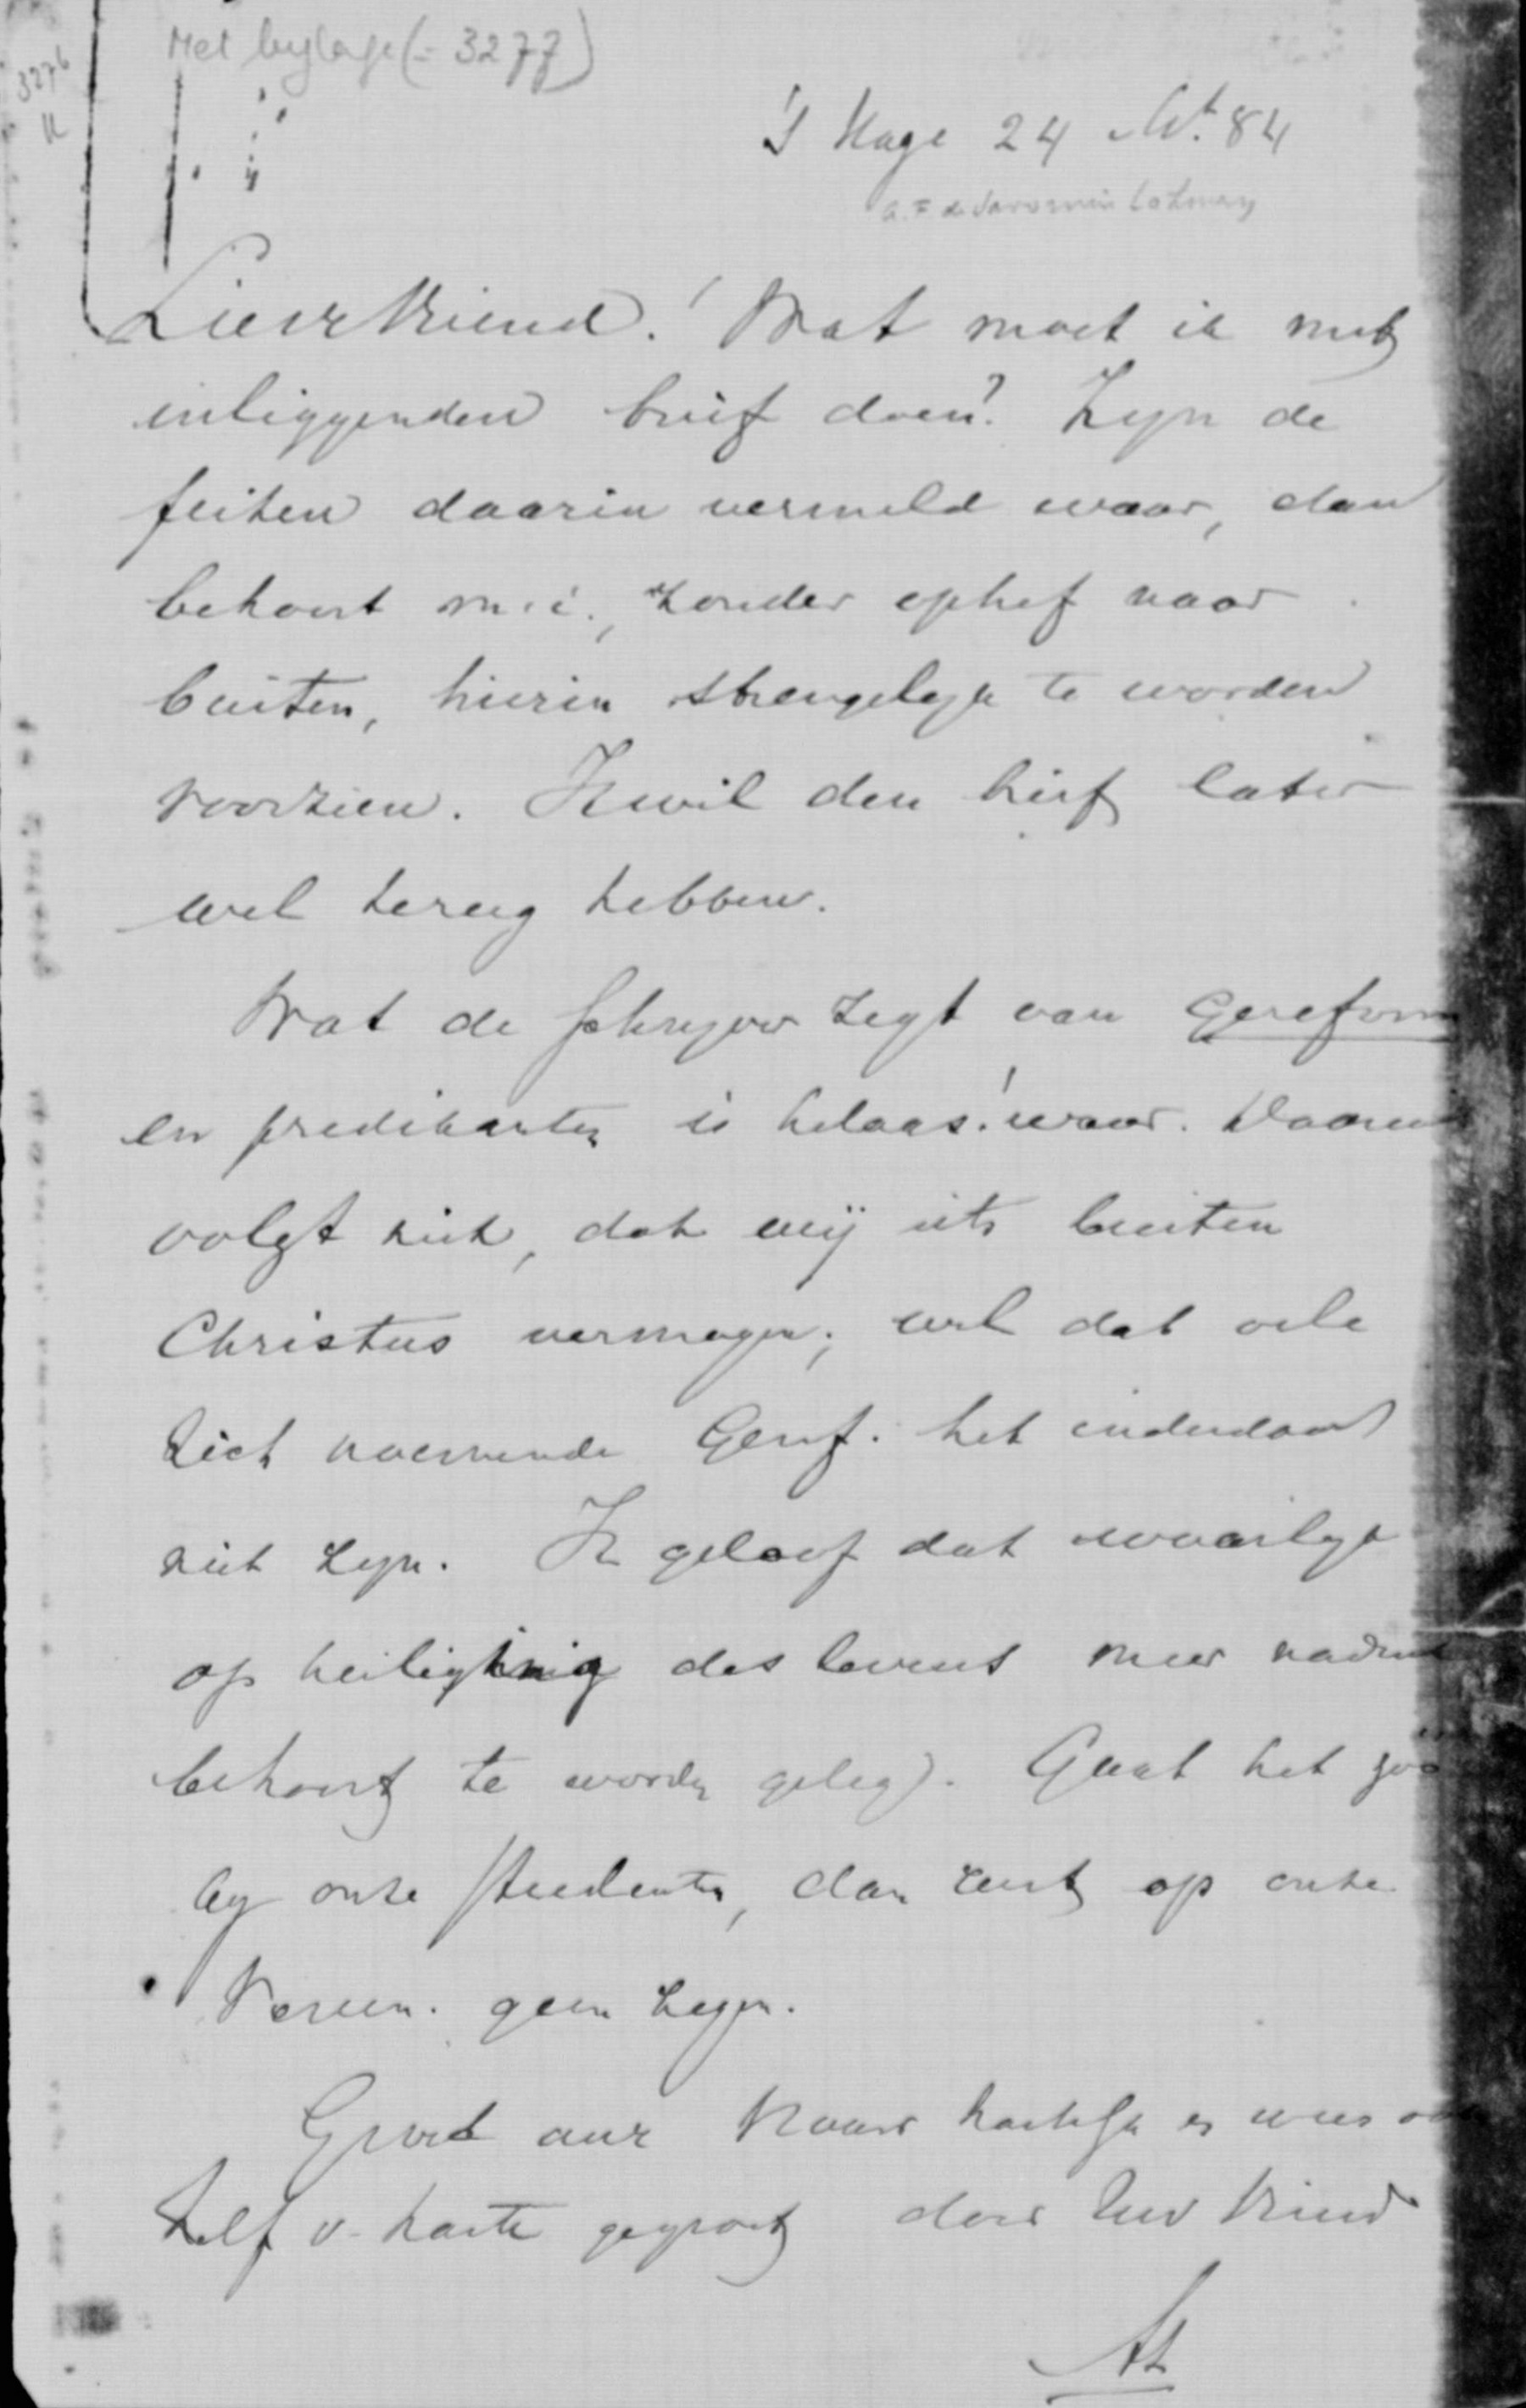 Met bijlage (= 3277)
3276
's Hage 24 Mt. 84
A. F. de Savornin Lohman
Lieve Vriend! Wat moet ik met
inliggenden brief doen? Zyn de
feiten daarin vermeld waar, dan
behoort m.i., zonder ophef naar
buiten, hierin strengelyk te worden
voorzien. Ik wil den brief later
wel terug hebben.
Wat de schryver zegt van Gereform
en predikanten is helaas! waar. Daaruit
volgt niet, dat wij iets buiten
Christus vermogen; wel dat vele
zich noemende Geref. het inderdaad
niet zyn. Ik geloof dat waarlyk
op heiliging des levens meer nadruk
behoort te worden gelegd. Gaat het zoo
by onze studenten, dan rust op onze
Vereen. geen zegen.
Groet uwe Vrouw hartelyk en wees
zelf v. harte gegroet door Uw Vriend
AL